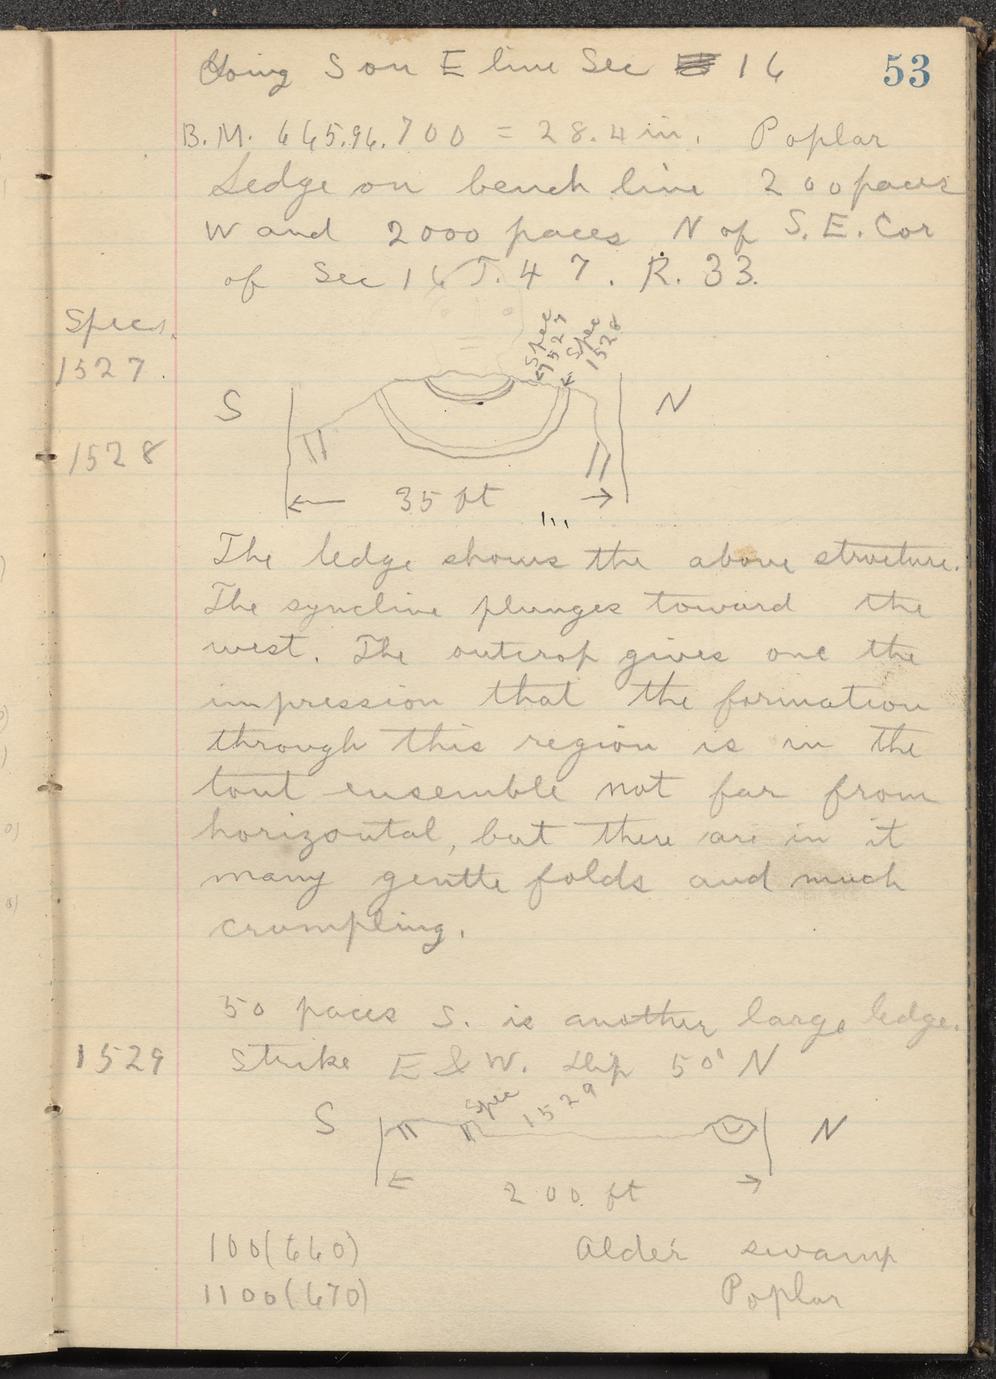 53
Going S on E line Sec 16
B.M. 645.96.700 = 28.4 in. Poplar
Ledge on bench line 200 paces
W and 2000 paces N of S.E. Cor
of Sec 16 T. 47. R. 33.
Specs.
1527.
1528
Spec 1527
Spec 1528
S N
35 ft
The ledge shows the above structure.
The syncline plunges toward the
west. The outcrop gives one the
impression that the formation
through this region is in the
tout ensemble not far from
horizontal, but there are in it
many gentle folds and much
crumpling.
50 paces S. is another large ledge.
1529 Strike E & W. Dip 50° N
Spec 1529
S N
200 ft
100(660) Alder swamp
1100(670) Poplar